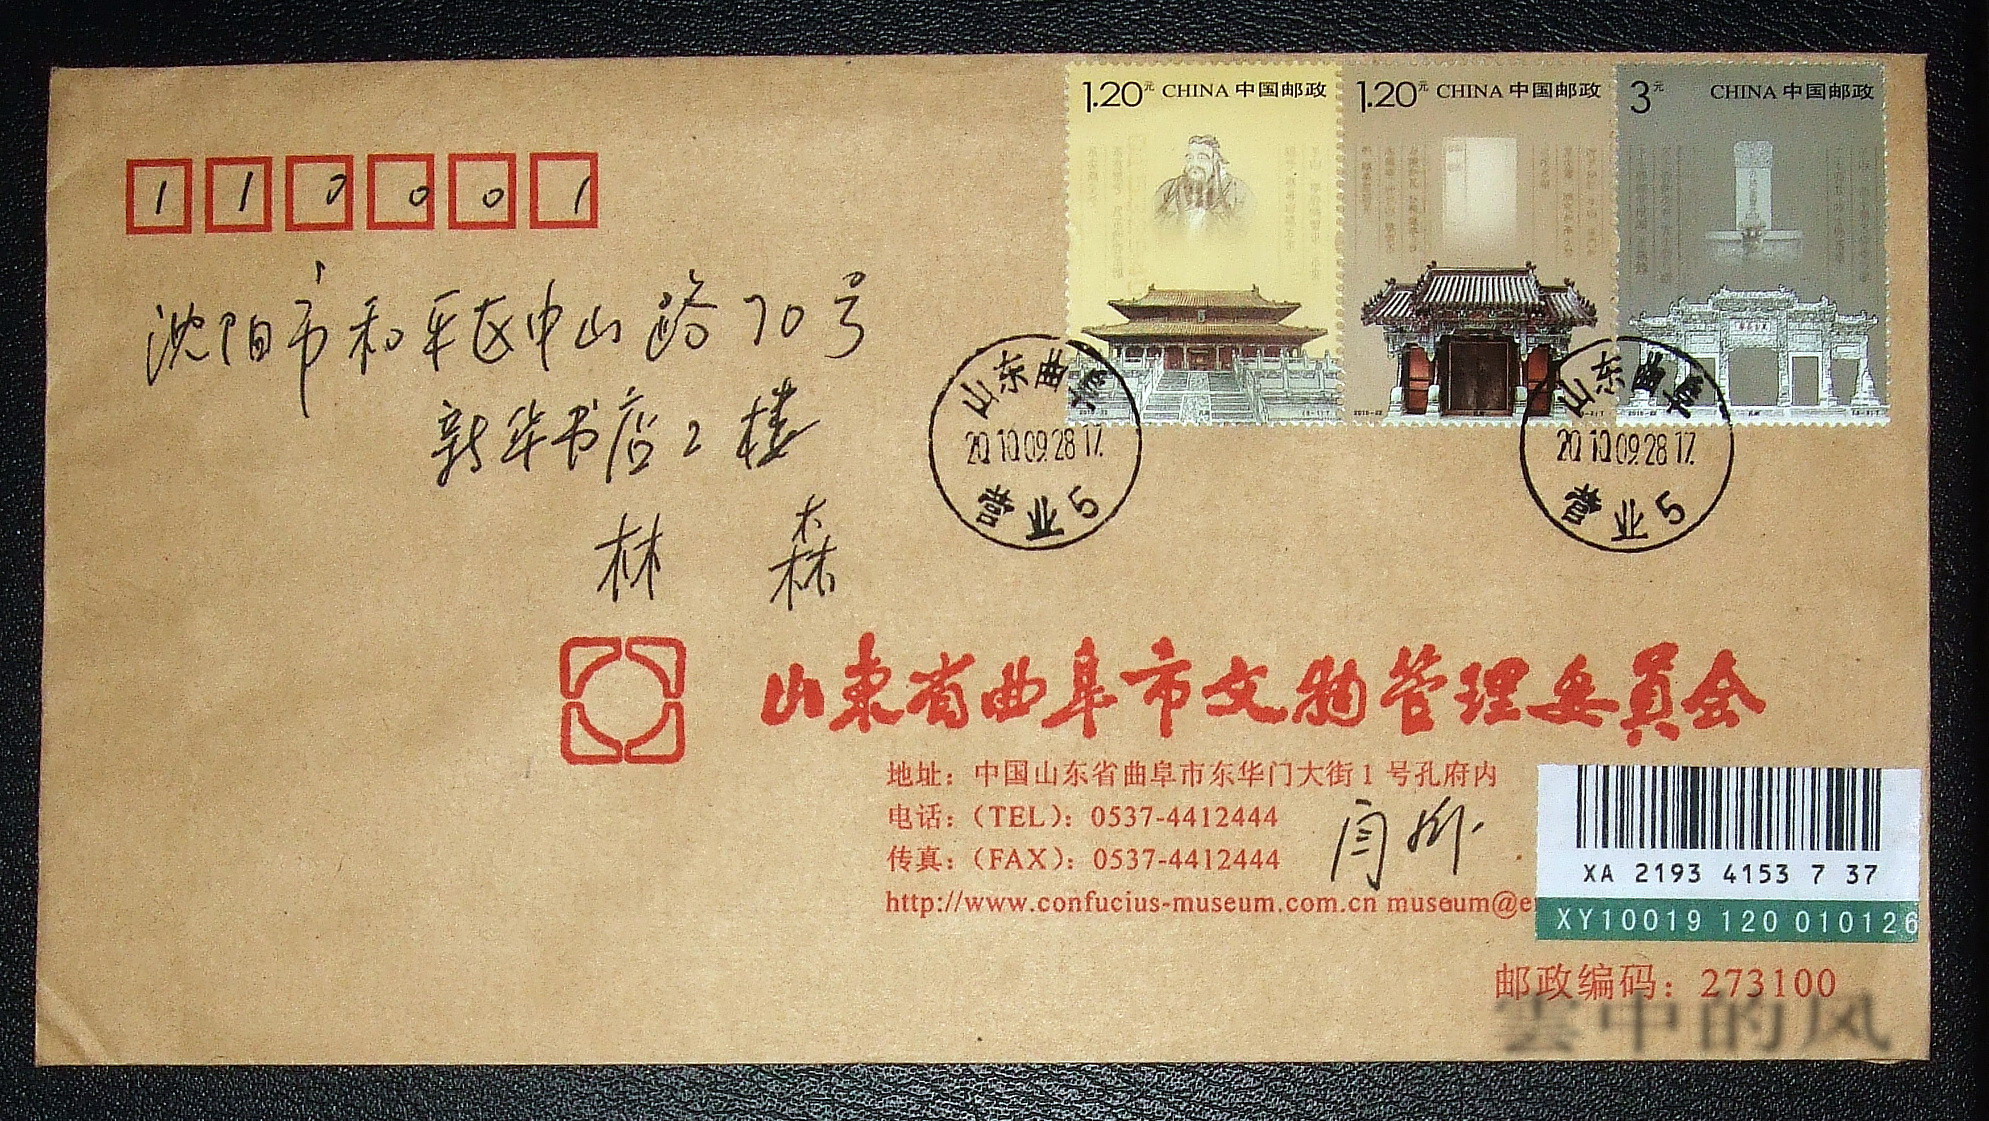 1.20元 CHINA 中国邮政
1.20元 CHINA 中国邮政
3元 CHINA 中国邮政
110001
沈阳市和平区中山路70号
新华书店2楼
林 森
山东曲阜
2010.09.28 17.
营业5
山东曲阜
2010.09.28 17.
营业5
山东省曲阜市文物管理委员会
地址：中国山东省曲阜市东华门大街1号孔府内
电话：（TEL）：0537-4412444
传真：（FAX）：0537-4412444
http://www.confucius-museum.com.cn museum@e
XA 2193 4153 7 37
XY10019 120 010126
邮政编码：273100
雲中的风